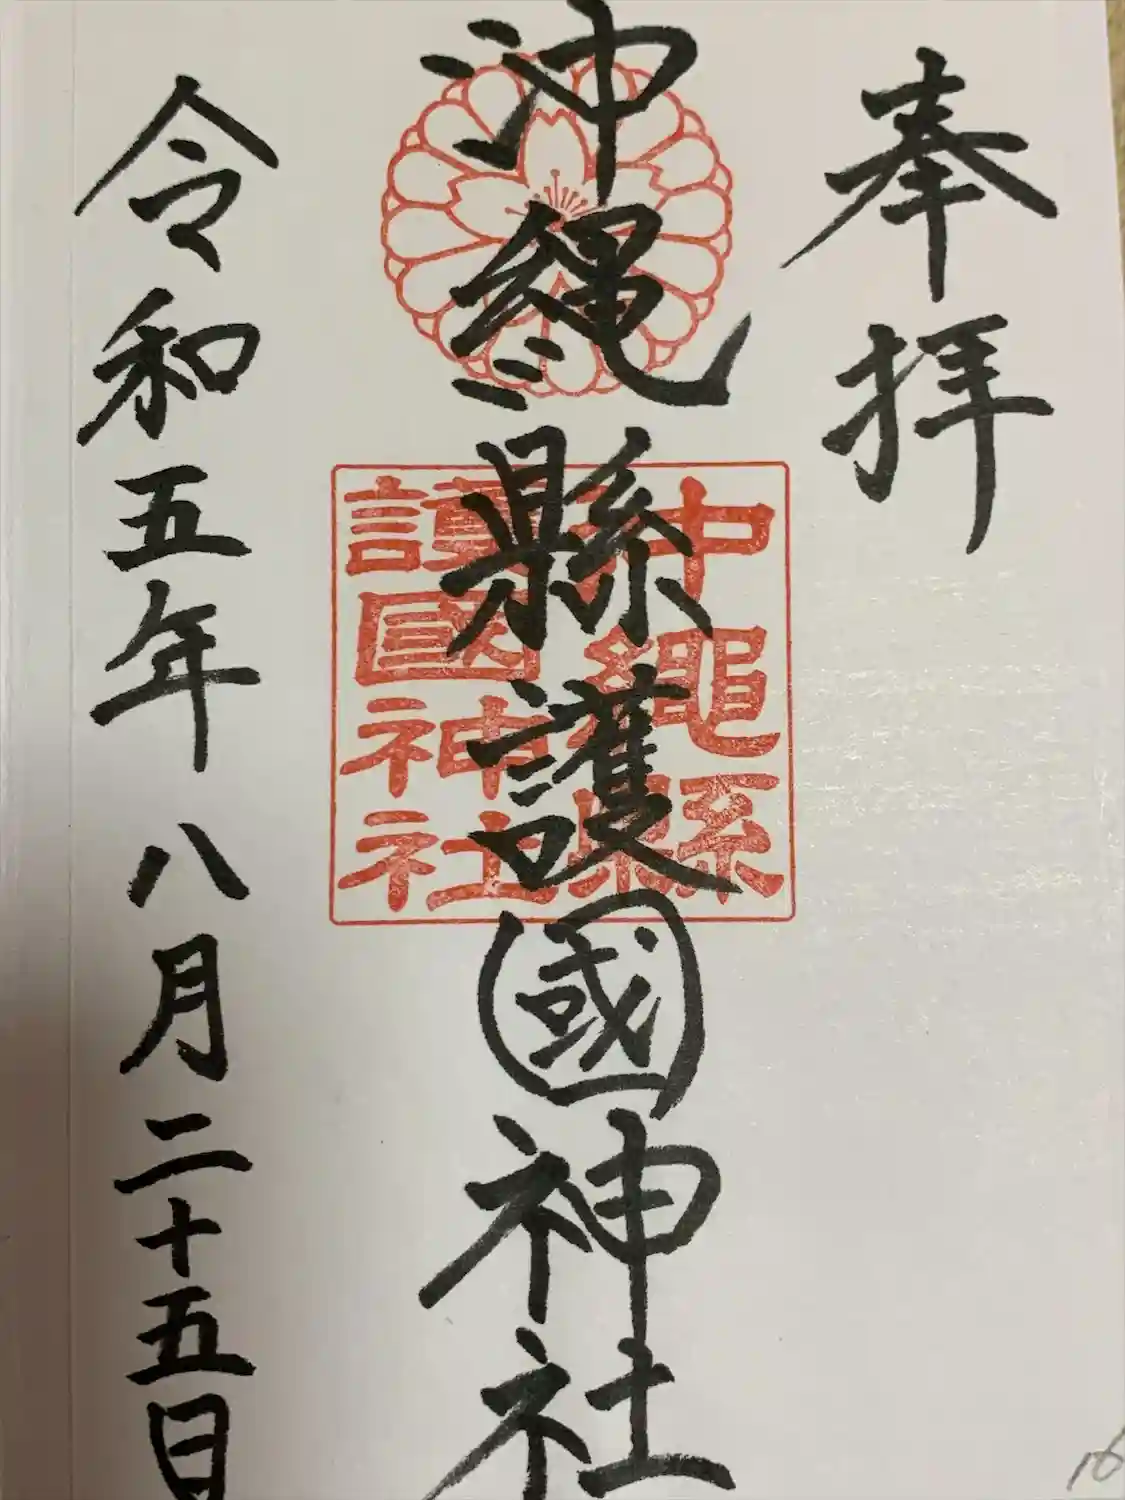 奉拝
沖縄縣護國神社
沖繩縣
護國神社
令和五年八月二十五日
16